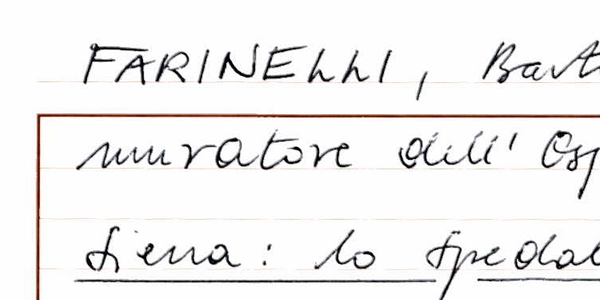 FARINELLI, Bart
muratore dell' Osp
Siena: lo Spedal